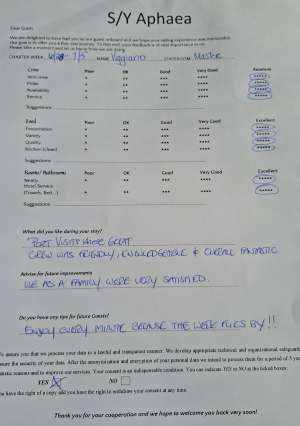 S/Y Aphaea
Dear Guest
We are delighted to have had you as our guest onboard and we hope your sailing experience was memorable.
Please take a moment and let us know how we are doing
CHARTER WEEK 7/5 NAME Viggiano
Crew Poor OK Good Very Good Excellent
Welcome * ** *** **** *****
Polite * ** *** **** *****
Availability * ** *** **** *****
Service * ** *** **** *****
Suggestions
Food Poor OK Good Very Good Excellent
Presentation * ** *** **** *****
Variety * ** *** **** *****
Quality * ** *** **** *****
Kitchen (clean) * ** *** **** *****
Suggestions
Rooms/ Bathrooms Poor OK Good Very Good Excellent
Neatly * ** *** **** *****
Hotel Service
(Towels, Bed...) * ** *** **** *****
Suggestions
What did you like during your stay?
PORT VISITS WERE GREAT
CREW WAS FRIENDLY, KNOWLEDGEABLE & OVERALL FANTASTIC
Advise for future improvements
WE AS A FAMILY WERE VERY SATISFIED.
Do you have any tips for future Guests?
ENJOY EVERY MINUTE BECAUSE THE WEEK FLIES BY!!
To assure you that we process your data in a lawful and transparent manner. We develop appropriate technical and organisational safeguards
ensure the security of your data. After the anonymization and encryption of your personal data we intend to process them for a period of 5 years
statistic reasons and to improve our services. Your consent is an indispensable condition. You can indicate YES or NO in the ticked boxes.
YES NO
You have the right of a copy and you have the right to withdraw your consent at any time.
Thank you for your cooperation and we hope to welcome you back very soon!